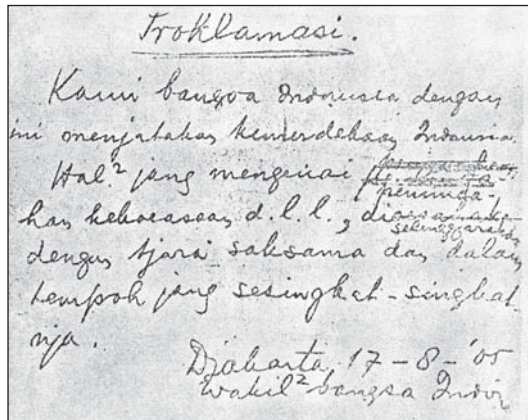 Proklamasi.
Kami bangsa Indonesia dengan
ini menjatakan kemerdekaan Indonesia.
Hal² jang mengenai
peminda-
han kekoeasaan, d.l.l.,
diselenggarakan
dengan tjara saksama dan dalam
tempoh jang sesingkat-singkat
nja.
Djakarta, 17 - 8 - '05
Wakil² bangsa Indon